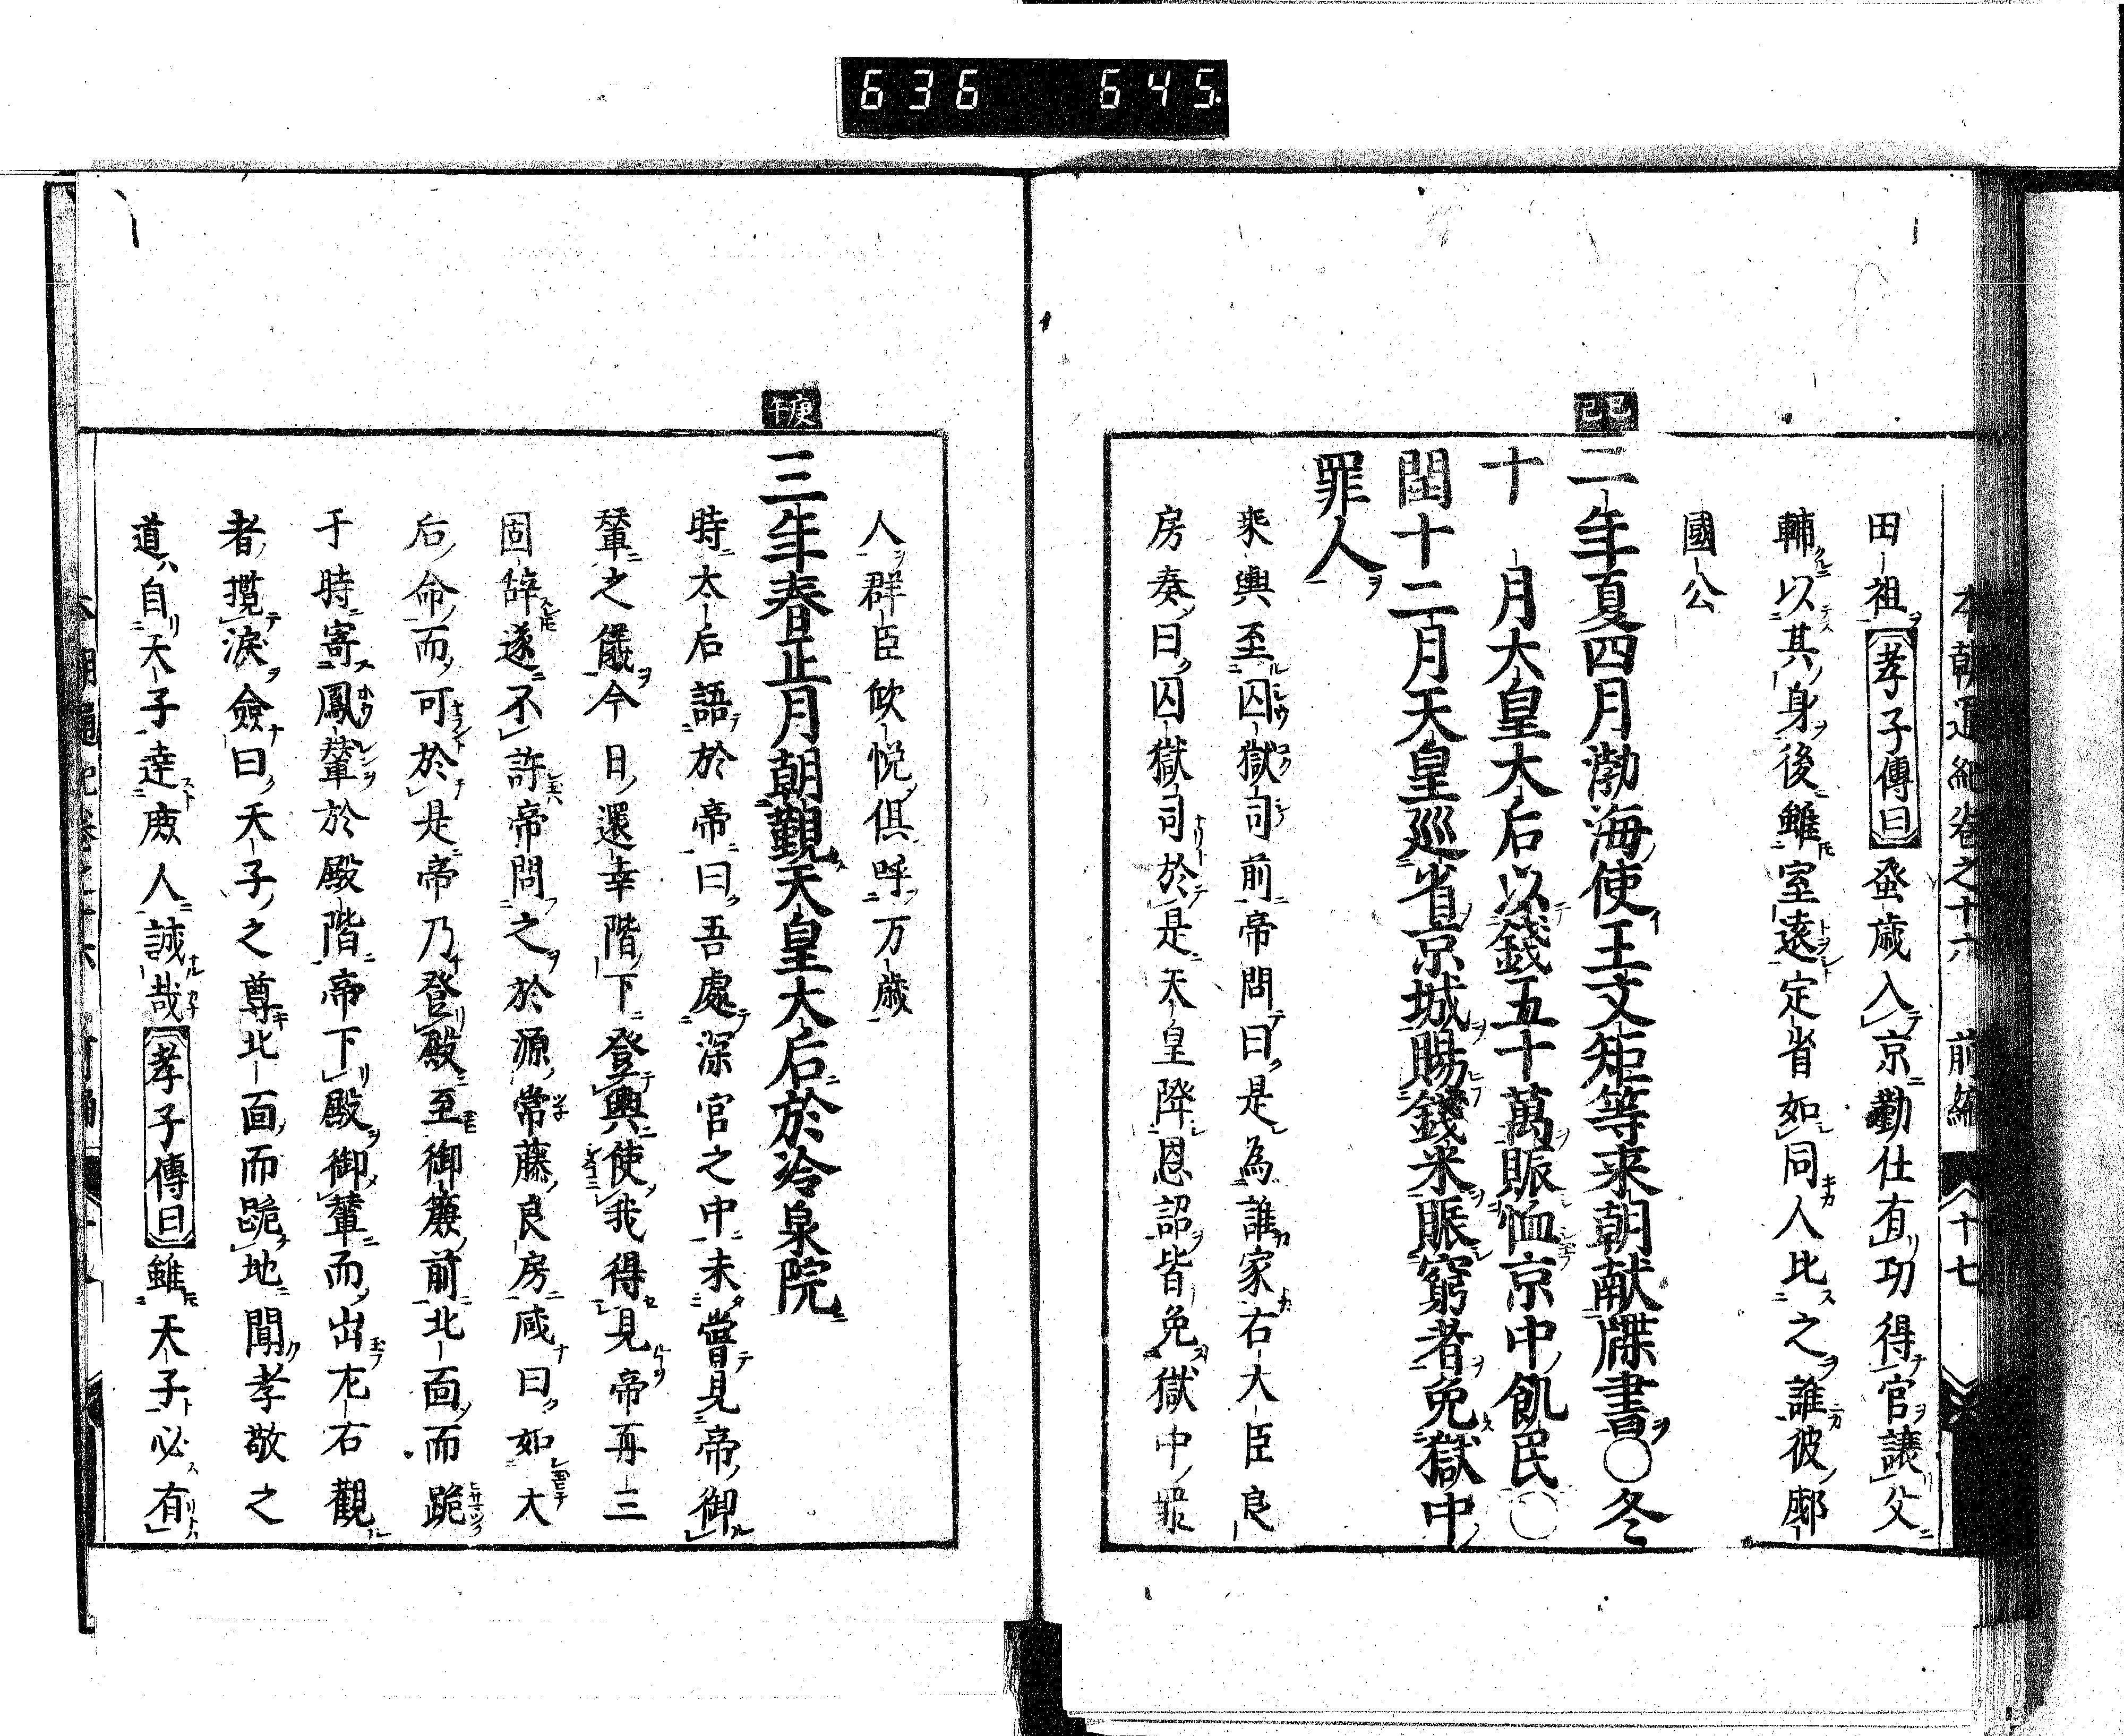 636 645.
本朝通紀卷之十六 前編 十七
田祖孝子傳曰蚤歳入京勤仕有功得官讓父
輔以其身後雖室遠定省如同人比之誰彼鄅
國公
己巳
二年夏四月渤海使王文矩等来朝献牒書〇冬
十 月大皇大后以錢五十萬賑恤京中飢民〇
閏十二月天皇巡省京城賜錢米賑窮者免獄中
罪人
乗輿至囚獄司前帝問曰是為誰家右大臣良
房奏曰囚獄司於是天皇降恩詔皆免獄中罪
人群臣欣悦倶呼万歳
庚午
三年春正月朝覲天皇大后於冷泉院
時太后語於帝曰吾處深宮之中未嘗見帝御
輦之儀今日還幸階下登輿使我得見帝再三
固辞遂不許帝問之於源常藤良房咸曰如大
后命而可於是帝乃登殿至御簾前北面而跪
于時寄鳳輦於殿階帝下殿御輦而出左右觀
者攬涙僉曰天子之尊北面而跪地聞孝敬之
道自天子達庶人誠哉孝子傳曰雖天子必有